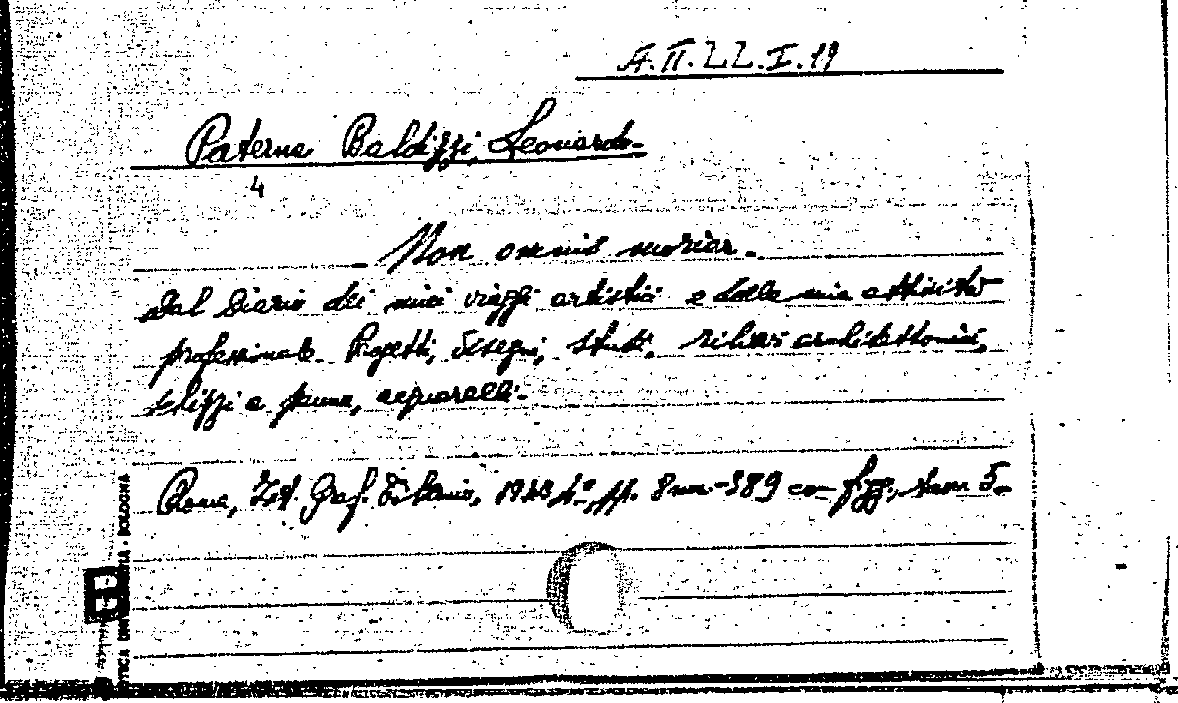 A.II.LL.I.19
Paterna Baldizzi, Leonardo-
4
- Non omnis moriar.-
Dal Diario dei miei viaggi artistici e della mia attività
professionale. Progetti, disegni, studi, rilievi architettonici,
schizzi a penna, acquarelli.-
Roma, Ist. Graf. Tiberino, 4º, pp. 8 nn.-389 con figg., 5.
BOLOGNA